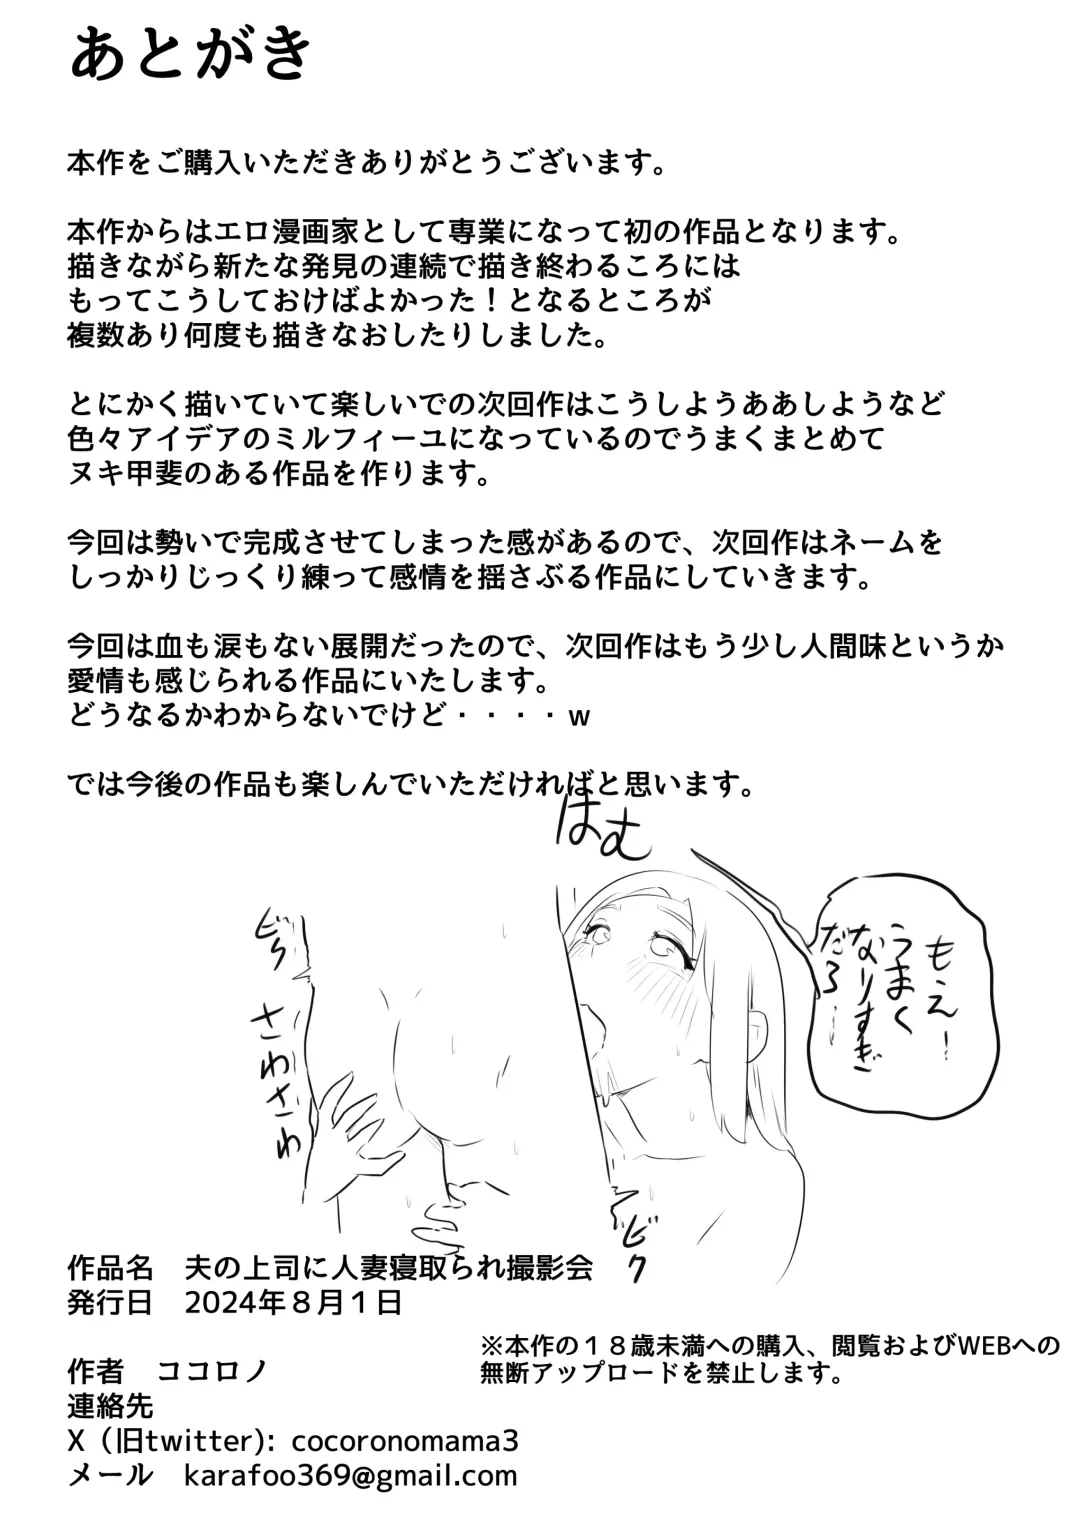 あとがき
本作をご購入いただきありがとうございます。
本作からはエロ漫画家として専業になって初の作品となります。
描きながら新たな発見の連続で描き終わるころには
もってこうしておけばよかった！となるところが
複数あり何度も描きなおしたりしました。
とにかく描いていて楽しいでの次回作はこうしようああしようなど
色々アイデアのミルフィーユになっているのでうまくまとめて
ヌキ甲斐のある作品を作ります。
今回は勢いで完成させてしまった感があるので、次回作はネームを
しっかりじっくり練って感情を揺さぶる作品にしていきます。
今回は血も涙もない展開だったので、次回作はもう少し人間味というか
愛情も感じられる作品にいたします。
どうなるかわからないでけど・・・・w
では今後の作品も楽しんでいただければと思います。
はむ
もえ！
うまく
なりすぎ
だろ…
さわさわ
ビク
作品名　夫の上司に人妻寝取られ撮影会
発行日　2024年８月１日
※本作の１８歳未満への購入、閲覧およびWEBへの
無断アップロードを禁止します。
作者　ココロノ
連絡先
X（旧twitter): cocoronomama3
メール　karafoo369@gmail.com